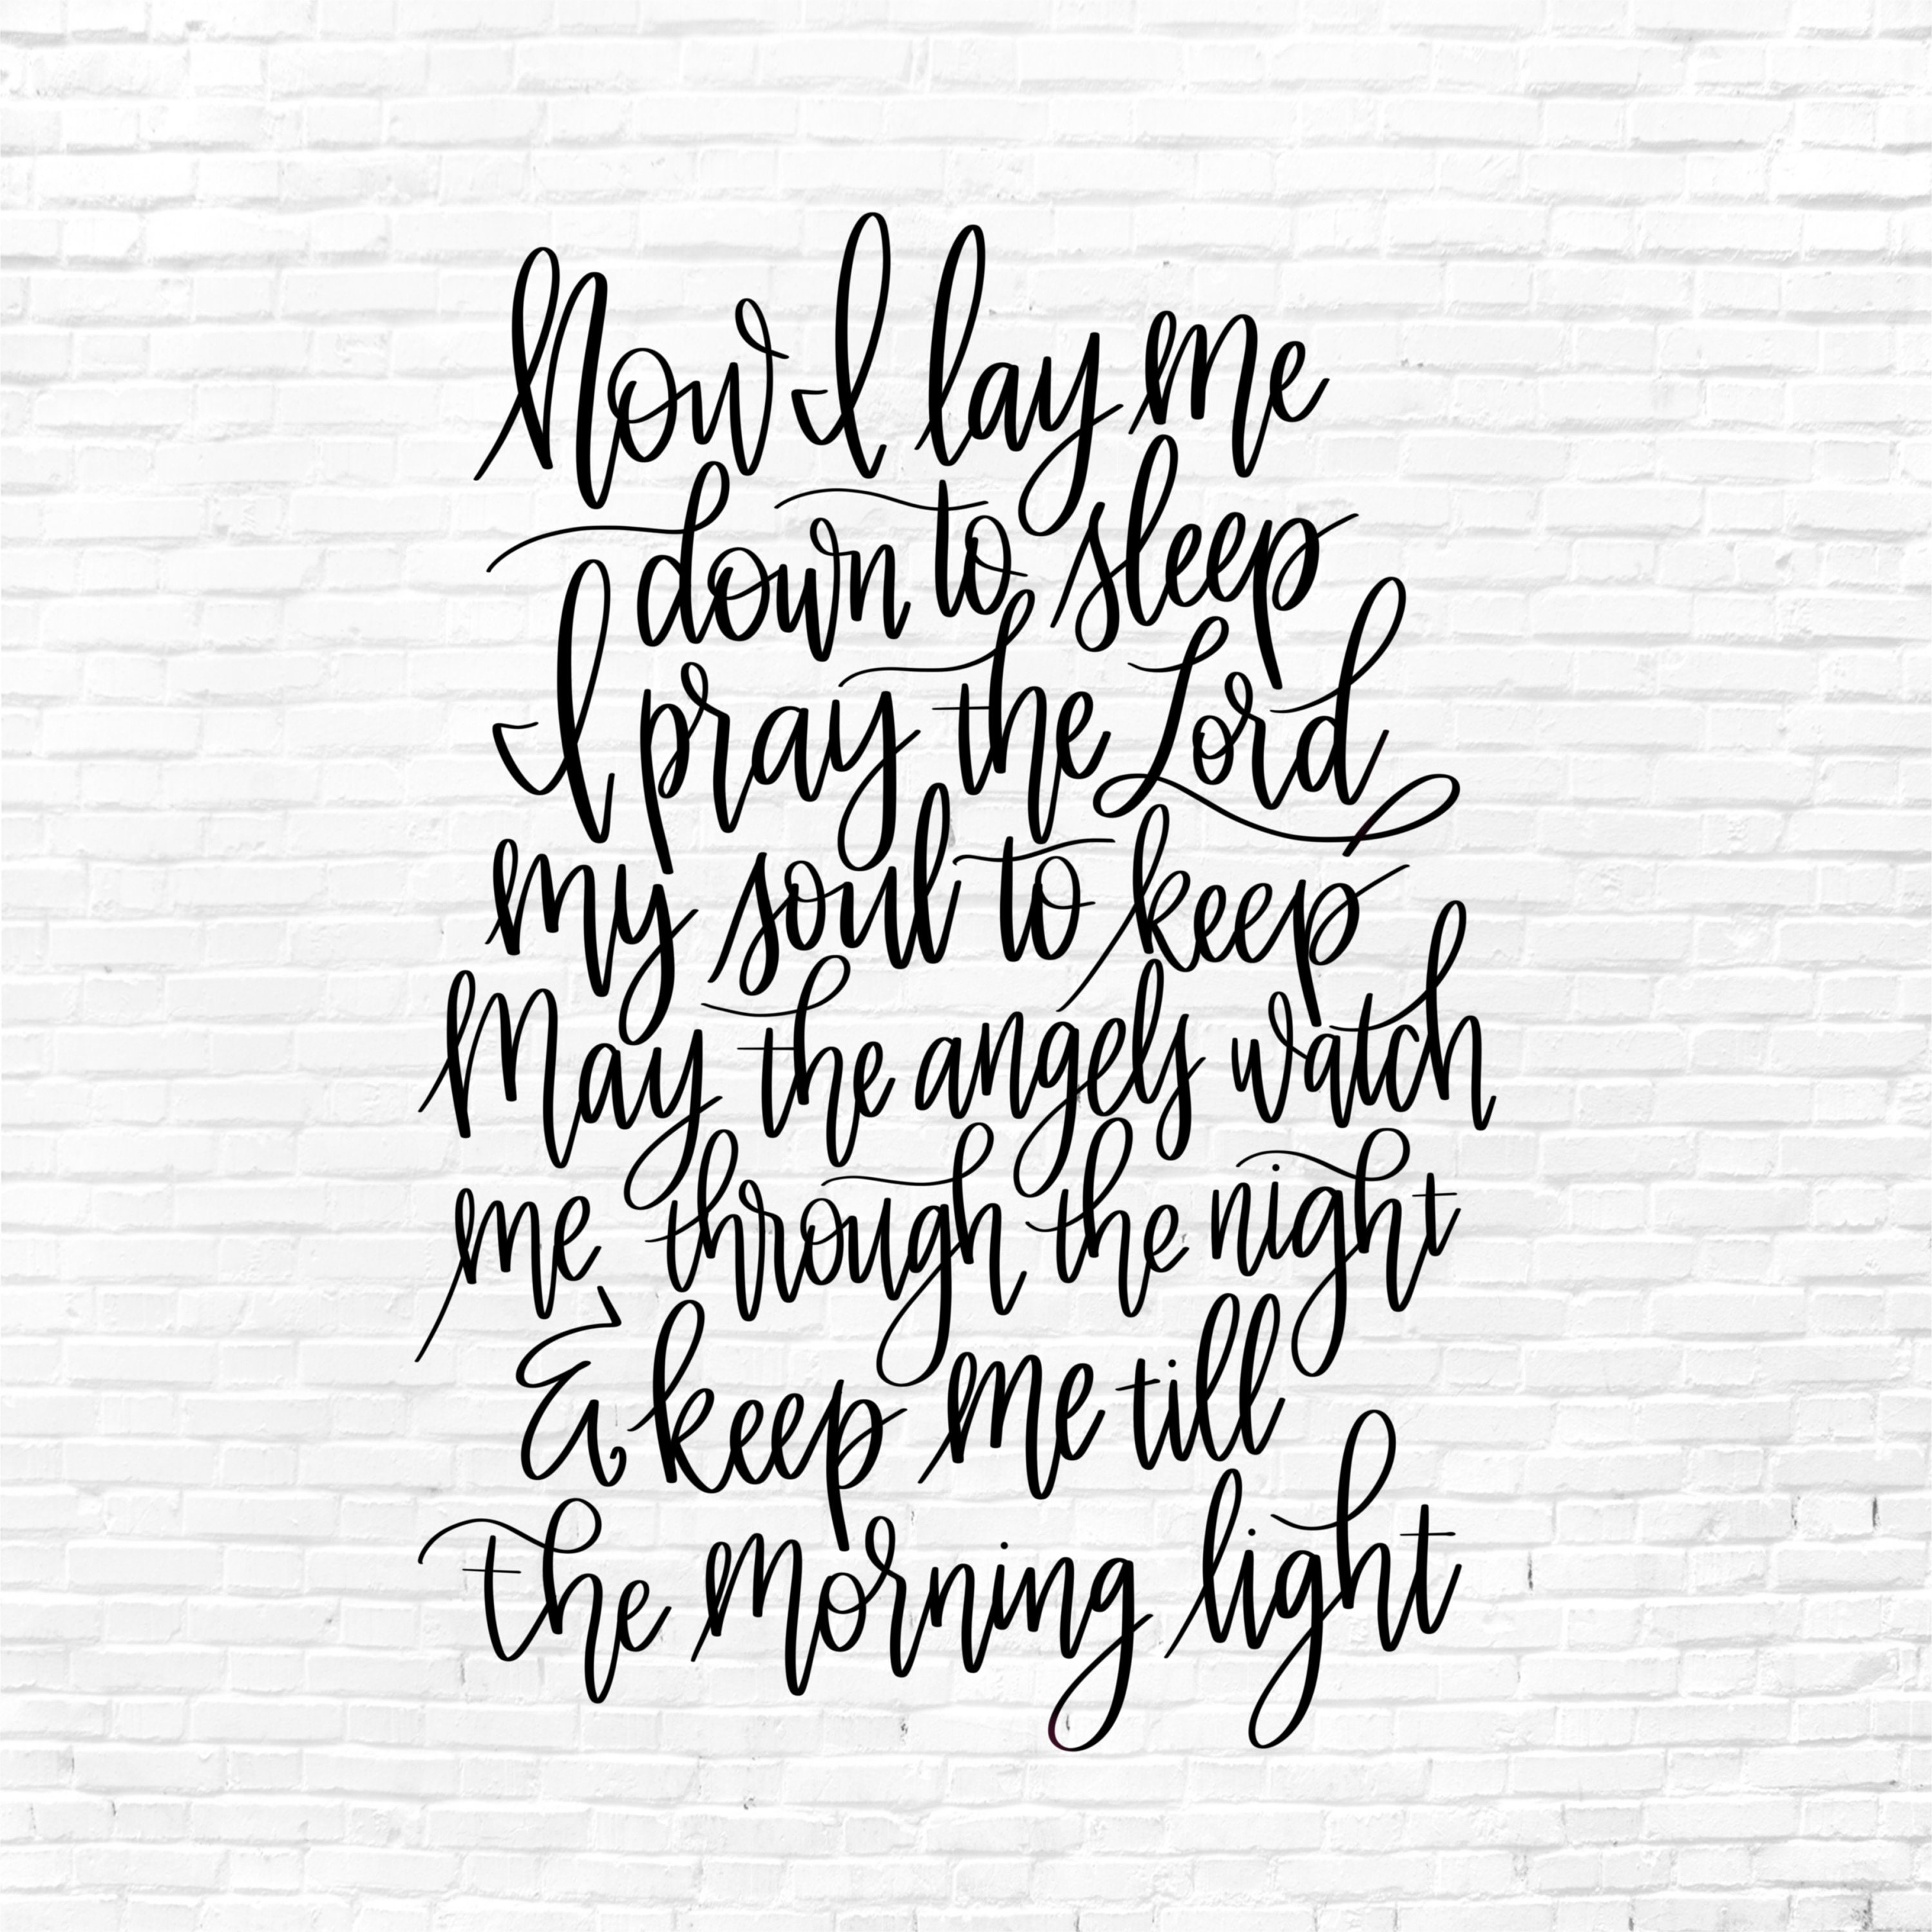 Now I lay me
down to sleep
I pray the Lord
my soul to keep
May the angels watch
me through the night
& keep me till
the morning light